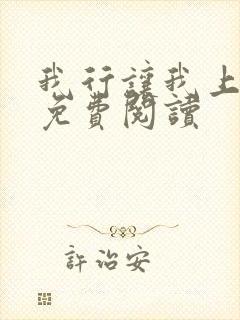 我行讓我上
免費閱讀
許治安